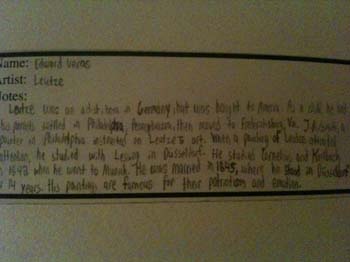 Name: Edward Varns
Artist: Leutze
Notes:
Leutze was an artist born in Germany, but was bought to America. As a child, he and
his parents settled in Philadelphia, Pennsylvania, then moved to Fredricksburg, Va. J.A. Smith, a
painter in Philadelphia instructed on Leutze's art. When a painting of Leutze attracted
attention, he studied with Lessing in Dusseldorf. He studied Cornelius and Kaulbach
in 1843 when he went to Munich. He was married in 1845, where he stood in Düsseldorf
14 years. His paintings are famous for their patriotism and emotion.